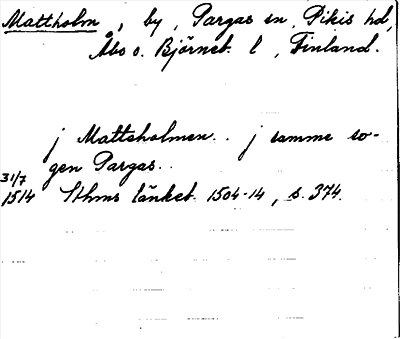 Mattholm, by, Pargas sn, Pikis hd,
Åbo o. Björneb. l, Finland.
j Mattsholmen.. j samme so-
gen Pargas..
31/7
1514 Sthms tänkeb. 1504-14, s. 374.